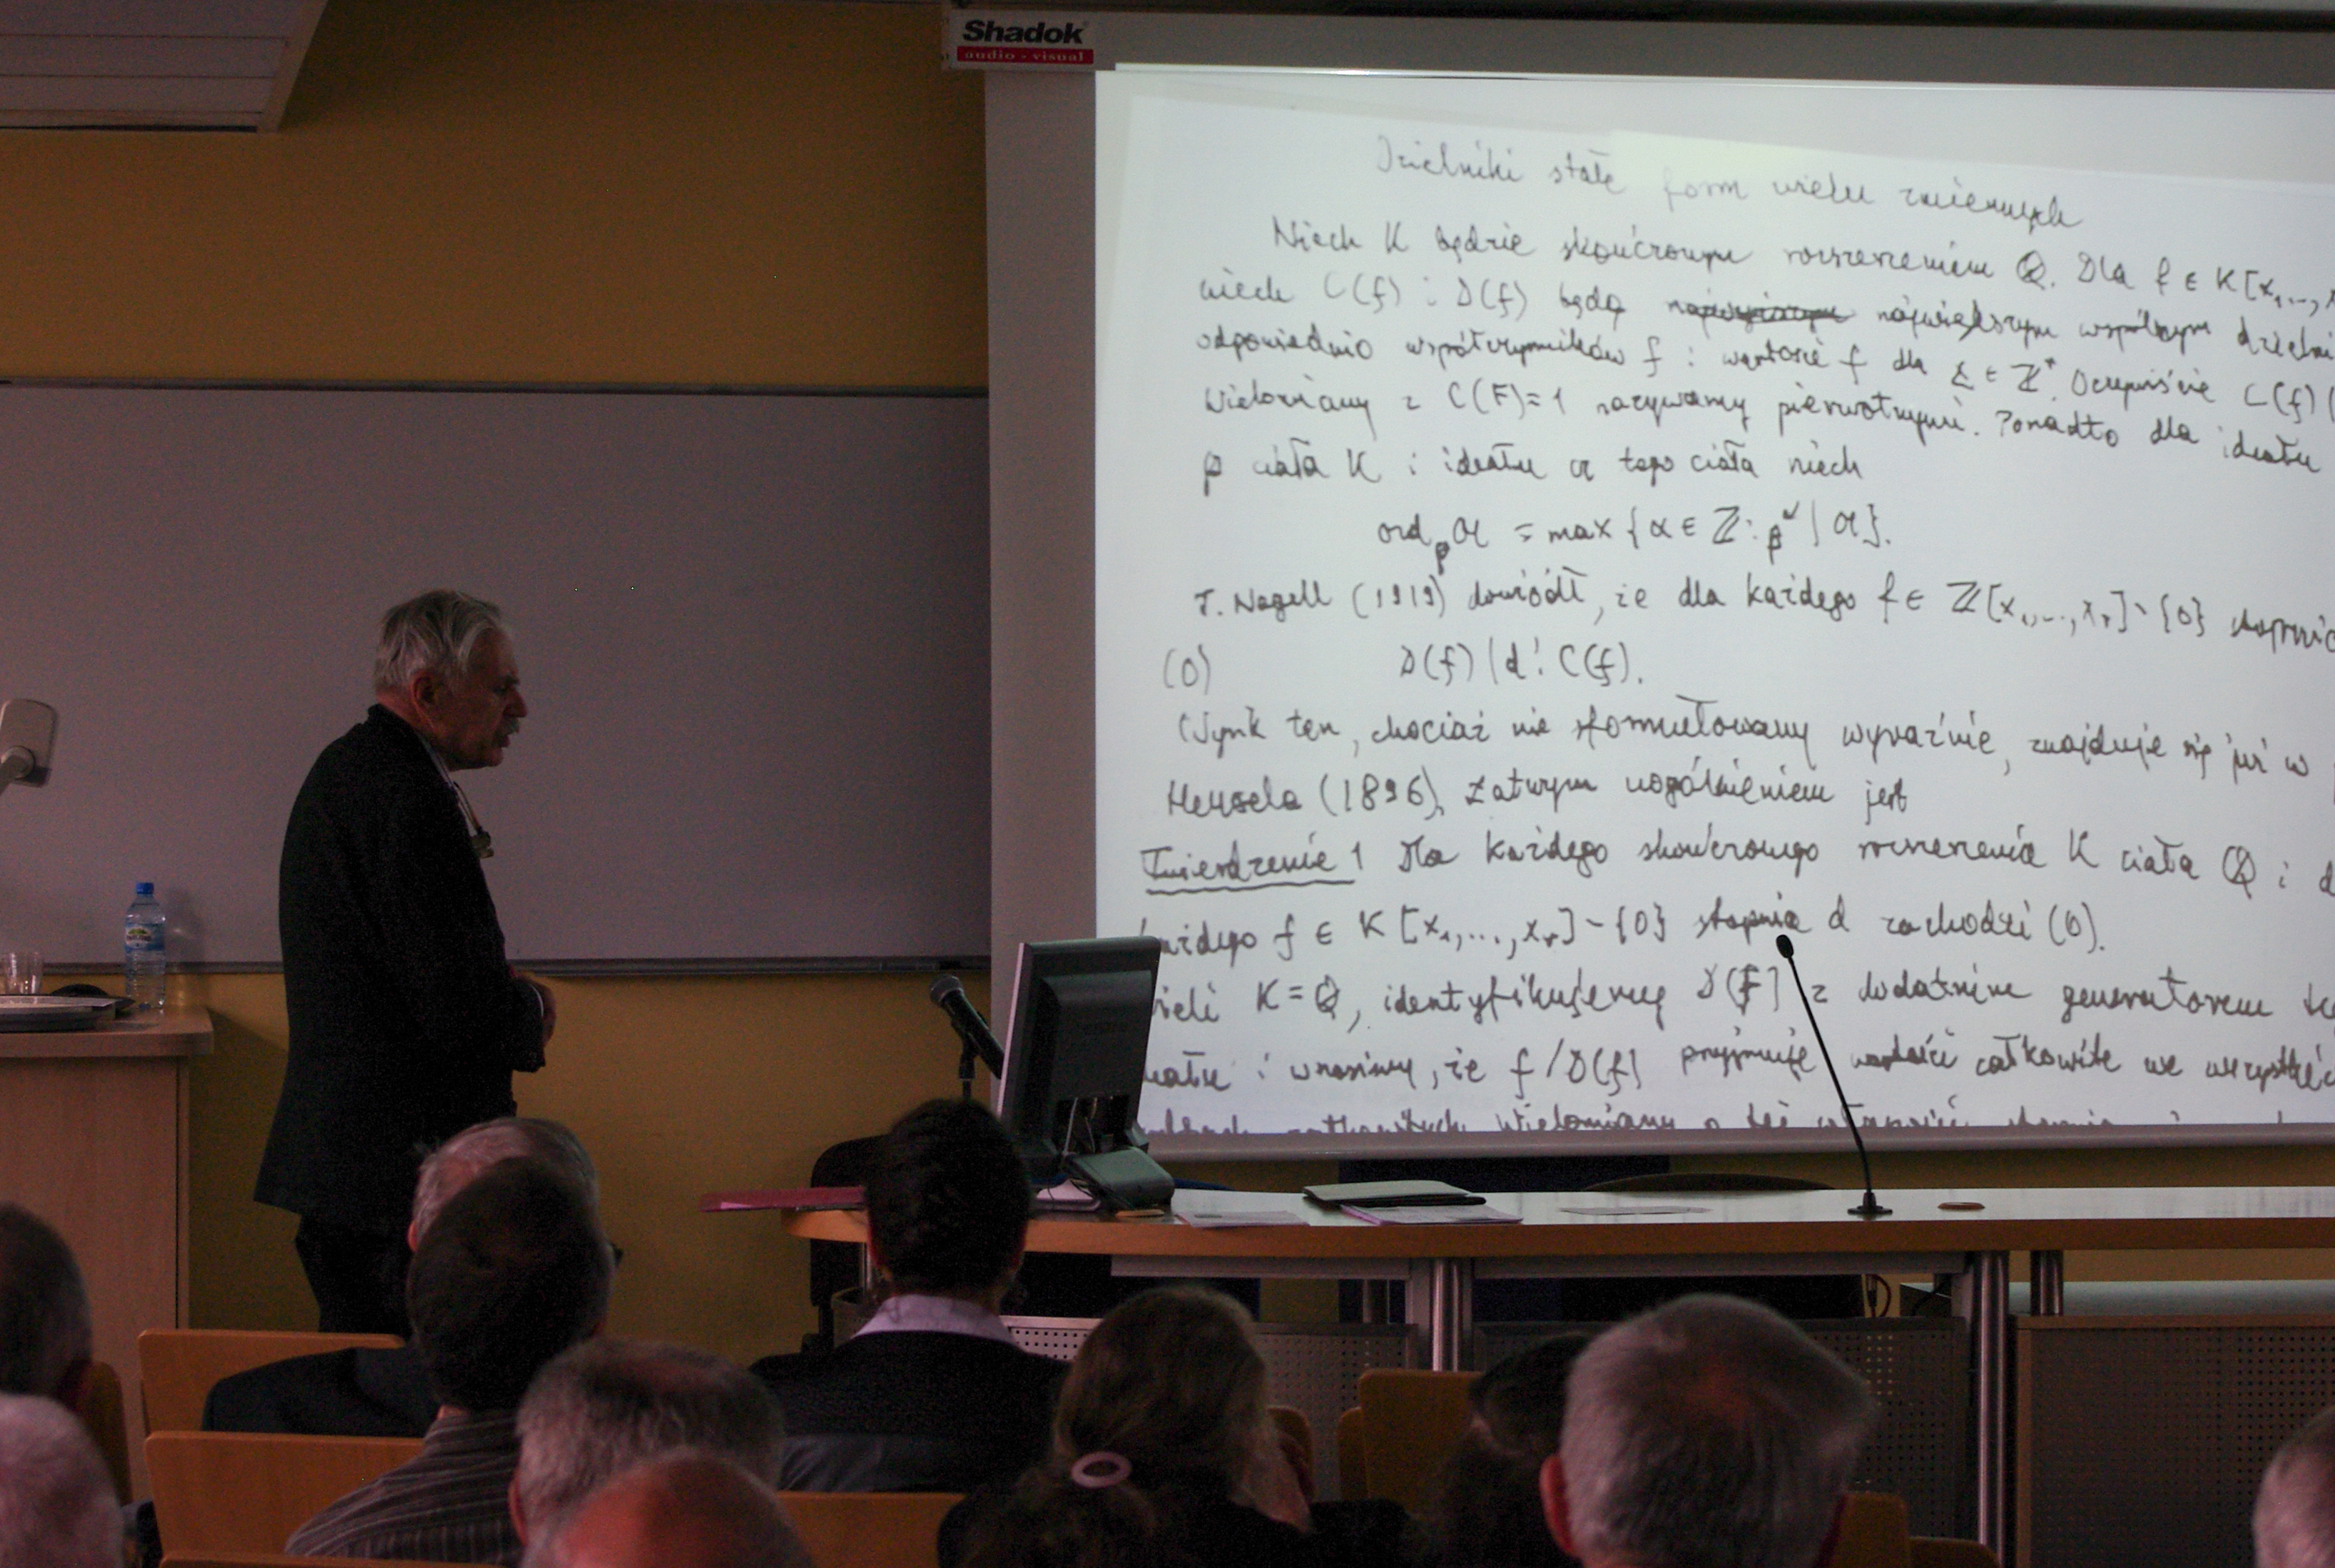 Shadok
audio - visual
Dzielniki stałe form wielu zmiennych
Niech K będzie skończonym rozszerzeniem ℚ. Dla f ∈ K[x₁,...,
niech C(f) i D(f) będą największym wspólnym dzielni
odpowiednio współczynników f i wartości f dla x ∈ ℤʳ. Oczywiście C(f) |
Wielomiany z C(F)=1 nazywamy pierwotnymi. Ponadto dla ideału
𝔭 ciała K i ideału 𝔞 tego ciała niech
ord_𝔭 𝔞 = max {α ∈ ℤ : 𝔭^α | 𝔞}.
T. Nagell (1919) dowiódł, że dla każdego f ∈ ℤ[x₁,...,xᵣ] \ {0} stopnia
(0) D(f) | d! C(f).
Wynik ten, chociaż nie sformułowany wyraźnie, znajduje się już w
Hensela (1896). Łatwym uogólnieniem jest
Twierdzenie 1 Dla każdego skończonego rozszerzenia K ciała ℚ i d
każdego f ∈ K[x₁,...,xᵣ] \ {0} stopnia d zachodzi (0).
K = ℚ, identyfikujemy D(f) z dodatnim generatorem te
i wnosimy, że f/D(f) przyjmuje wartości całkowite we wszystkic
całkowitych. Wielomiany o tej